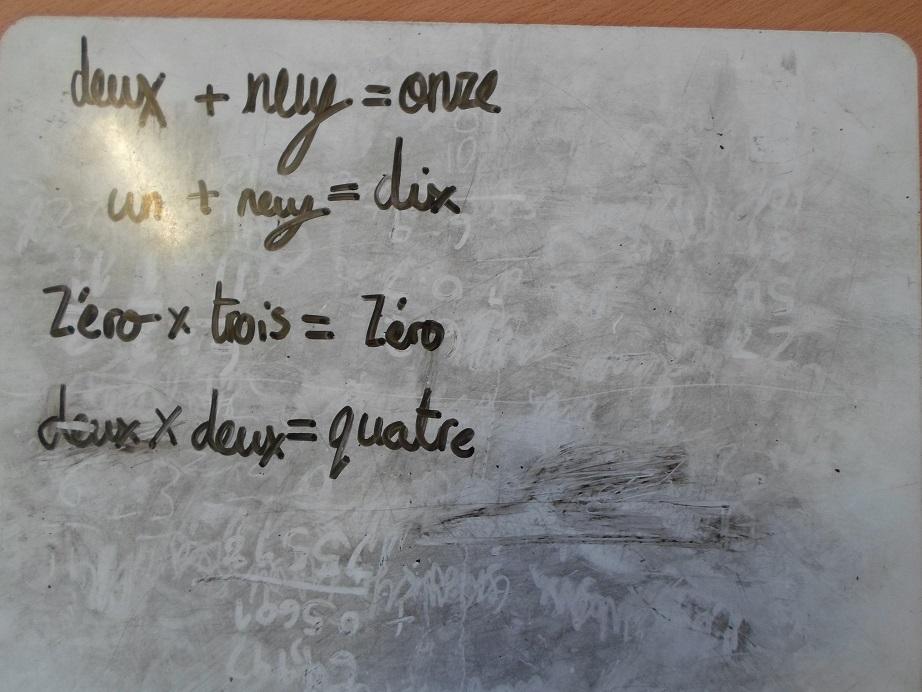 deux + neuf = onze
un + neuf = dix
Zéro x trois = Zéro
deux x deux = quatre